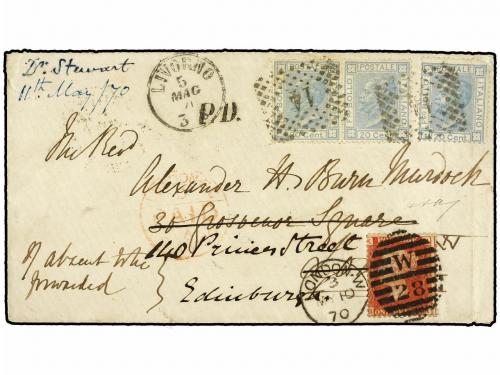 Dr. Stewart
11th May /70
LIVORNO
5
MAG
71
3
P.D.
POSTALE
ITALIANO
20 Cent
POSTALE
ITALIANO
20 Cent
POSTALE
ITALIANO
20 Cent
The Revd
Alexander H. Burn Murdock
30 Grosvenor Square
140 Princes Street
Edinburgh
if absent to be
forwarded
PAID
LONDON.W
3
70
W
28
W